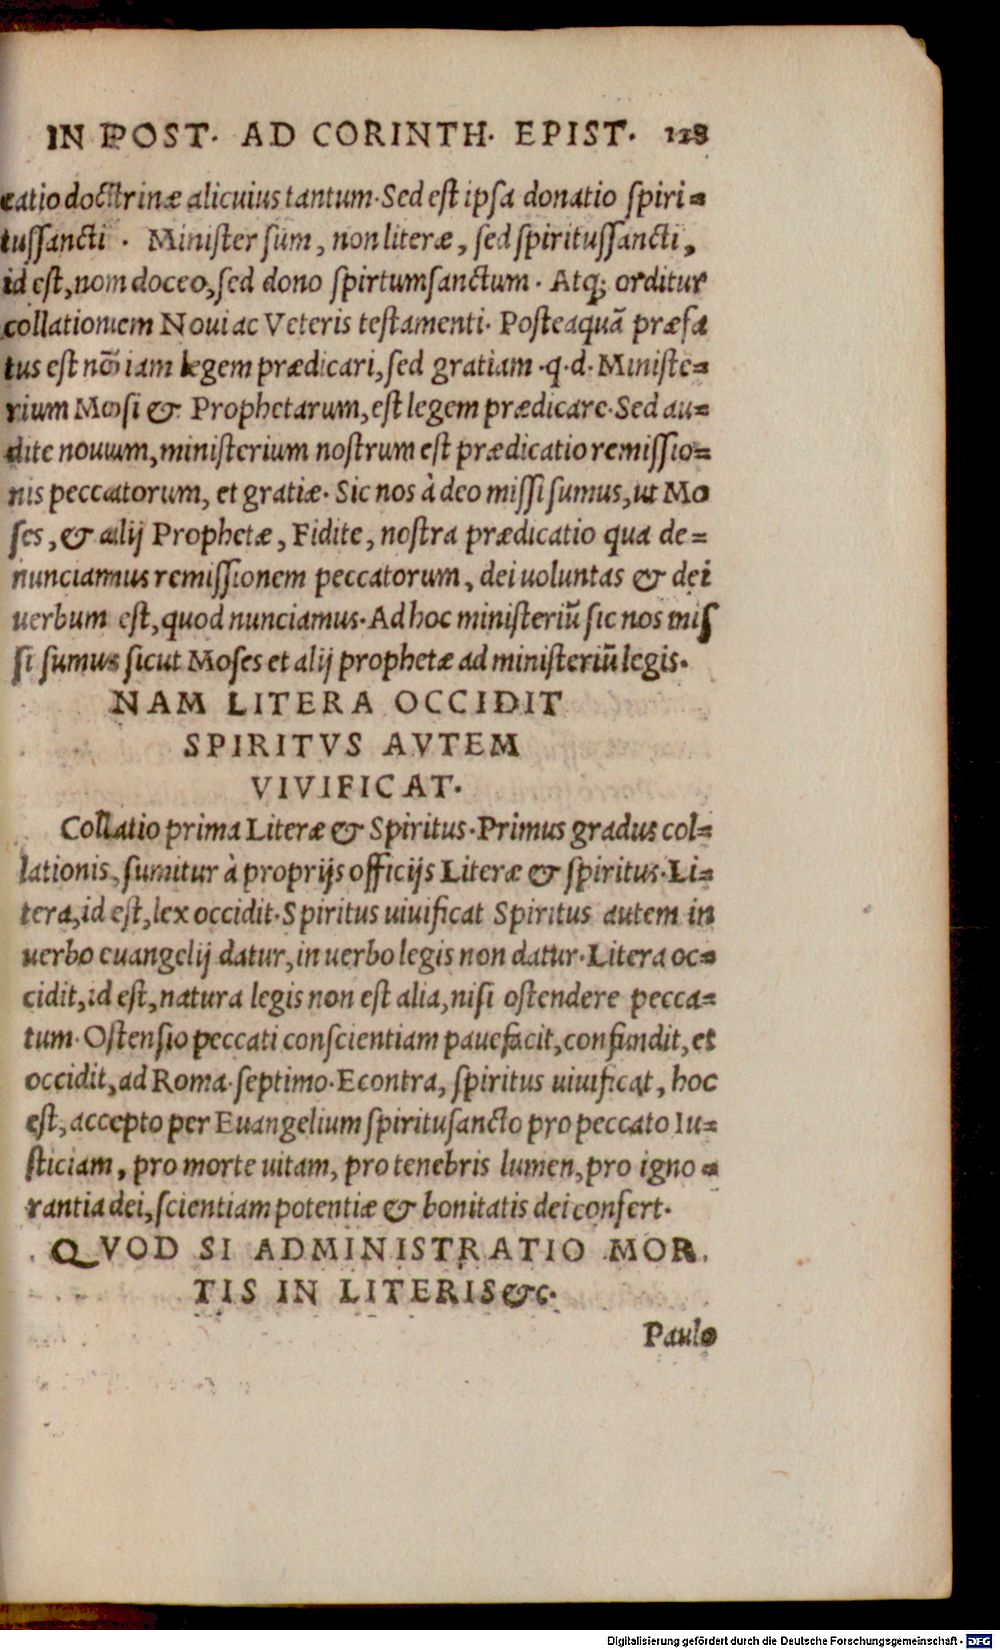 IN POST. AD CORINTH. EPIST. 128
catio doctrinæ alicuius tantum. Sed est ipsa donatio spiri=
tussancti. Minister sum, non literæ, sed spiritussancti,
id est, nom doceo, sed dono spirtumsanctum. Atq; orditur
collationem Noui ac Veteris testamenti. Posteaquā præfa
tus est nō iam legem prædicari, sed gratiam .q.d. Ministe=
rium Mosi & Prophetarum, est legem prædicare. Sed au=
dite nouum, ministerium nostrum est prædicatio remissio=
nis peccatorum, et gratiæ. Sic nos à deo missi sumus, ut Mo
ses, & alij Prophetæ, Fidite, nostra prædicatio qua de=
nunciamus remissionem peccatorum, dei uoluntas & dei
uerbum est, quod nunciamus. Ad hoc ministeriū sic nos mis
si sumus sicut Moses et alij prophetæ ad ministeriū legis.
NAM LITERA OCCIDIT
SPIRITVS AVTEM
VIVIFICAT.
Collatio prima Literæ & Spiritus. Primus gradus col=
lationis, sumitur à proprijs officijs Literæ & spiritus. Li=
tera, id est, lex occidit. Spiritus uiuificat Spiritus autem in
uerbo euangelij datur, in uerbo legis non datur. Litera oc=
cidit, id est, natura legis non est alia, nisi ostendere pecca=
tum. Ostensio peccati conscientiam pauefacit, confundit, et
occidit, ad Roma. septimo. Econtra, spiritus uiuificat, hoc
est, accepto per Euangelium spiritusancto pro peccato Iu=
sticiam, pro morte uitam, pro tenebris lumen, pro igno=
rantia dei, scientiam potentiæ & bonitatis dei confert.
QVOD SI ADMINISTRATIO MOR
TIS IN LITERIS &c.
Paulo
Digitalisierung gefördert durch die Deutsche Forschungsgemeinschaft - DFG